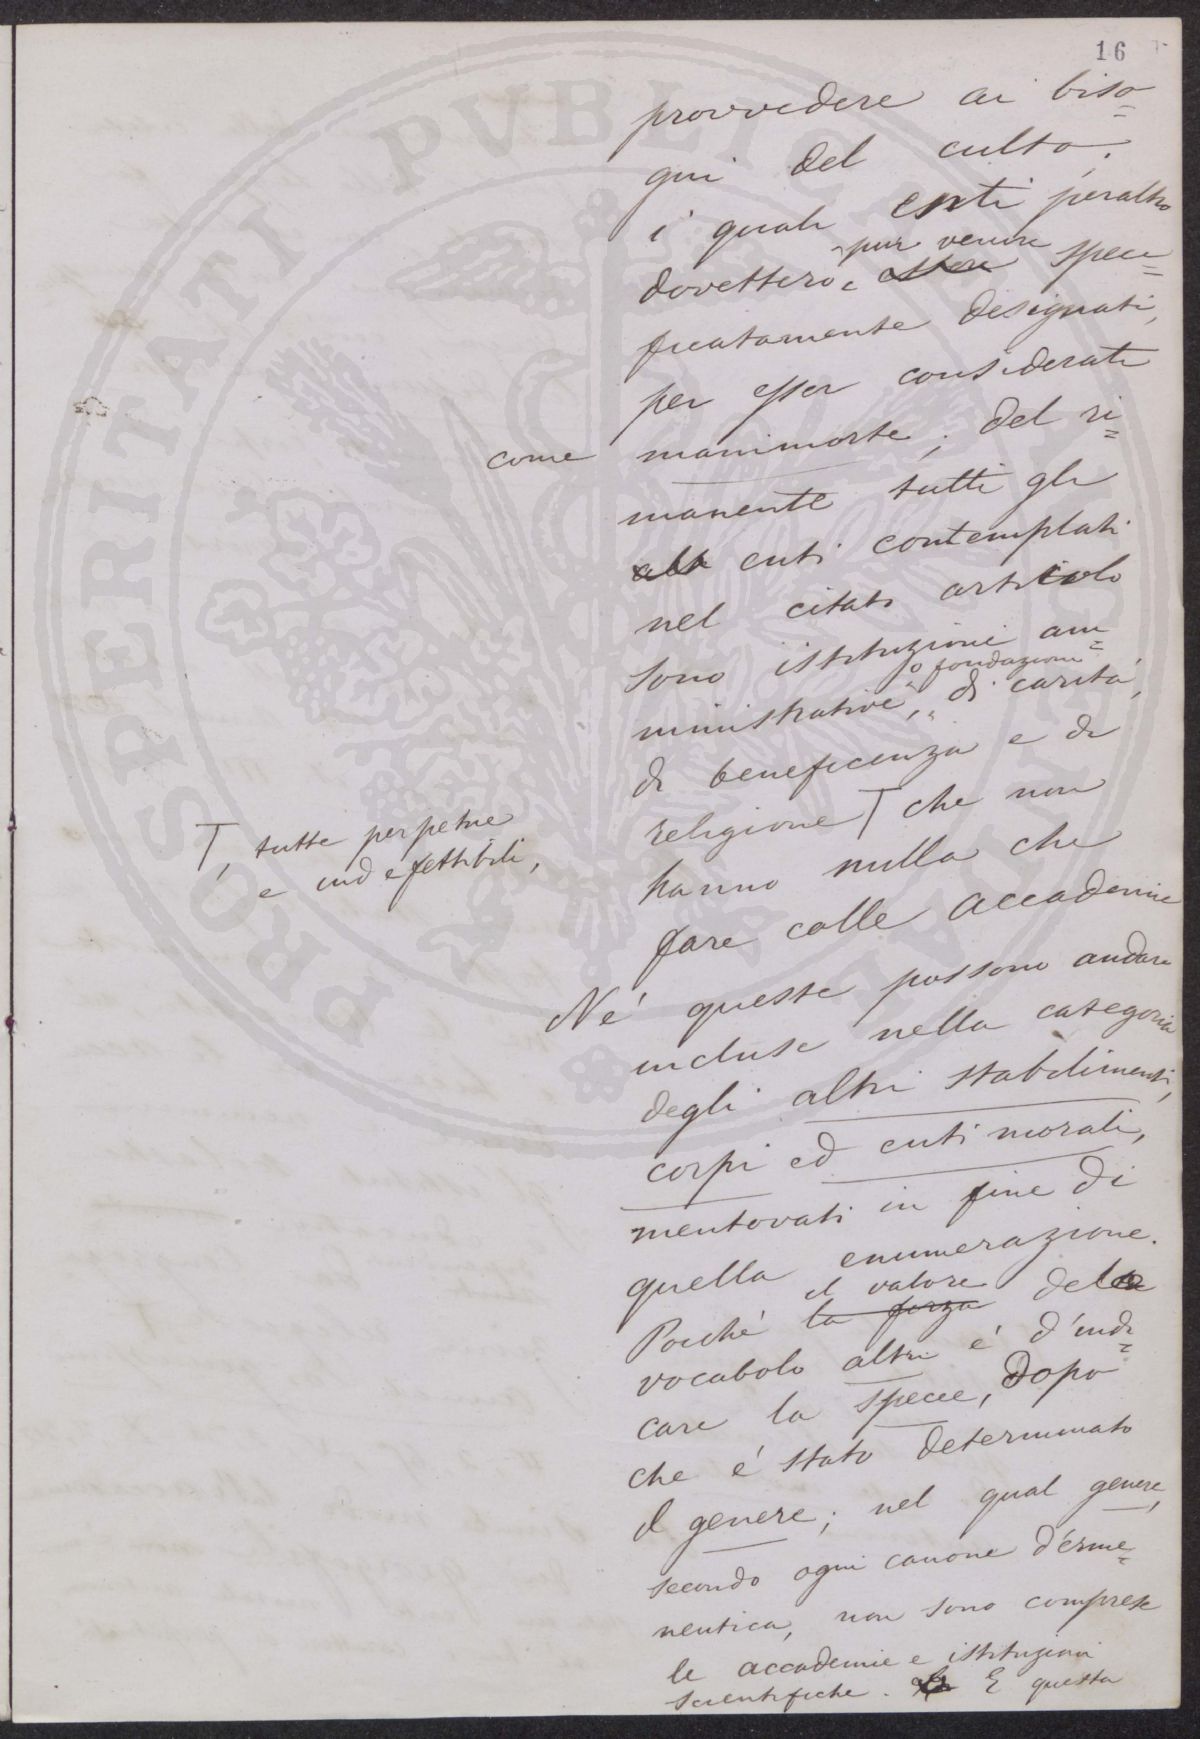 16
provvedere ai biso=
gni del culto,
i quali enti peraltro
pur venire
dovettero, essere speci=
ficatamente designati,
per esser considerati
come manimorte; del ri=
manente tutti gli
altri enti contemplati
nel citato articolo
sono istituzioni am=
o fondazioni
ministrative, di carità,
di beneficenza e di
religione T che non
T, tutte perpetue
e indefettibili,
hanno nulla che
fare colle accademie
Nè queste possono andare
incluse nella categoria
degli altri stabilimenti,
corpi ed enti morali,
mentovati in fine di
quella enumerazione.
il valore
Poichè la forza del
vocabolo altri è d'indi=
care la specie, dopo
che è stato determinato
il genere; nel qual genere,
secondo ogni canone d'erme=
neutica, non sono comprese
le accademie e istituzioni
scientifiche. E questa
PROSPERITATI PVBLICAE AVGENDAE